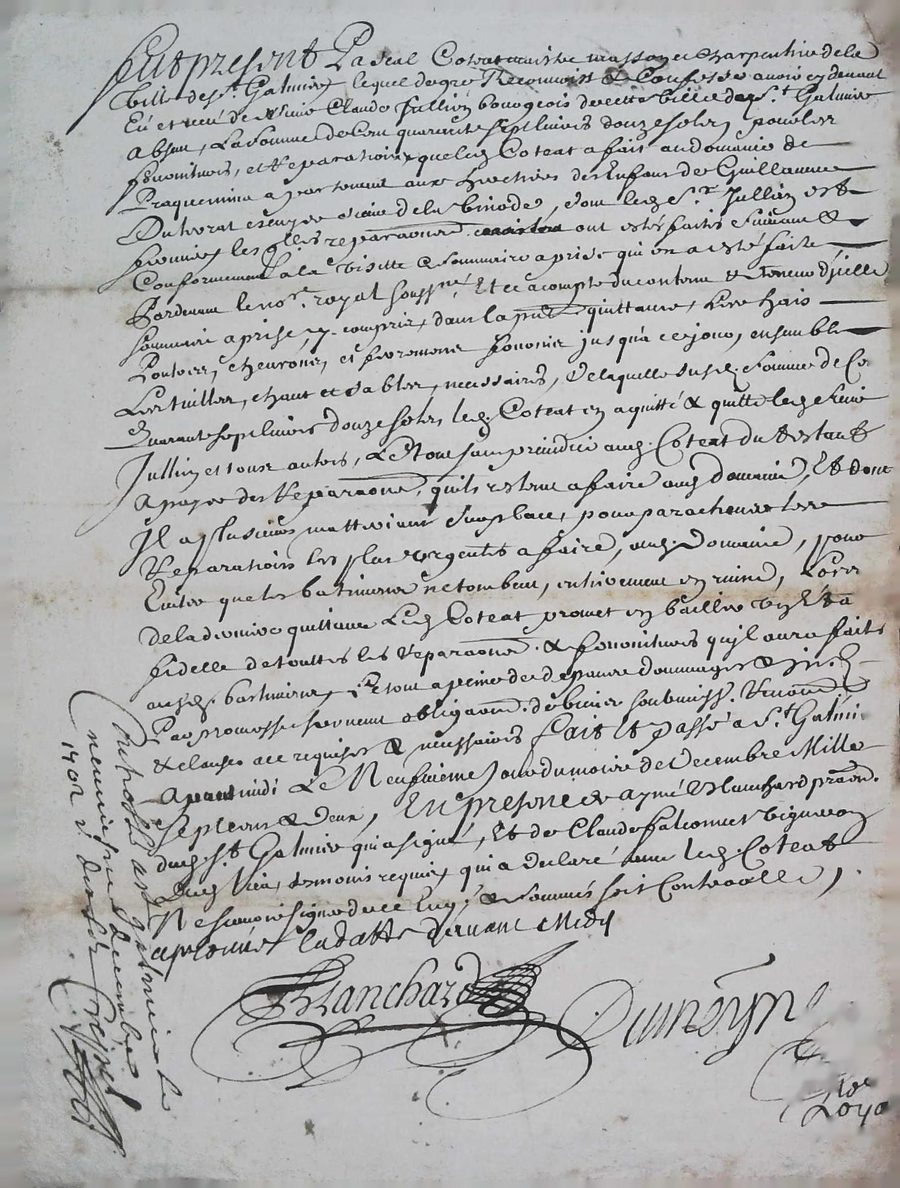 Fut present Pascal Coteat maistre masson et charpentier de la
ville de St. Galmier lequel de gre Reconnoit & Confesse avoir cy devant
Eu et receu de Sieur Claude Jullien bourgeois de cette ville de St. Galmier
absant, La somme de Cen quarante sept livres douze solz, pour les
fournitures, et Reparations que led. Coteat a fait au domaine de
Praquemina apartenant aux heritiers des Enfans de Guillaume
Duverat de la dont led. Sr. Jullien est
fermier, les qlles reparaons ont estés faites suivant &
Conformement a la visitte & sommaire aprise qui en a esté faite
Pardevant le nore. royal soussné. Et ce a compte du contenu & teneur d'jcelle
sommaire aprise, y compris, dans la pnte quittance, les bois
Pouttres, chevrons, et ferremens fournis jusqu'a ce jour, ensemble
Les tuilles, chaut et sables, necessaires, De laquelle susd. somme de Cen
Quarante sept livres douze solz, led. Coteat en a quitté & quitte led. sieur
Jullien et tous autres, Le tout sans prejudice aud. Coteat du restant
a payer des Reparaons, qu'ils restent a faire aud. domaine, Et dont
Il a plusieurs matteriaux sur place, pour parachever les
Reparations les plus urgentes a faire, aud. Domaine, pour
Eviter que les batimens ne tombent, entierement en ruine, Lors
de la derniere quittance Led. Coteat promet en bailler
fidelle de touttes les reparaons & fournitures qu'jl aura faits
ausd. bastimens, Le tout a peine de depens dommages &
Par promesse serment obligaon. de biens soubmiss. Renon.
& clauses a ce requises & necessaires fait et Passé a St. Galmier
avant midi Le Neufvieme Jour du mois de Decembre Mille
Sept cens & deux, En presence de aymé Blanchard praon.
dud. St. Galmier qui a signé, Et de Claude falconnet vigneron
dud. lieu, temoins requis, qui a declaré avec led. Coteat
Ne scavoir signer de ce Enq. & sommés soit Controollé,
aprouvé la datte d'avant Midy
Blanchard
Dumeyn
Controllé a St galmier le
neuvieme decembre
1702 r. dix s